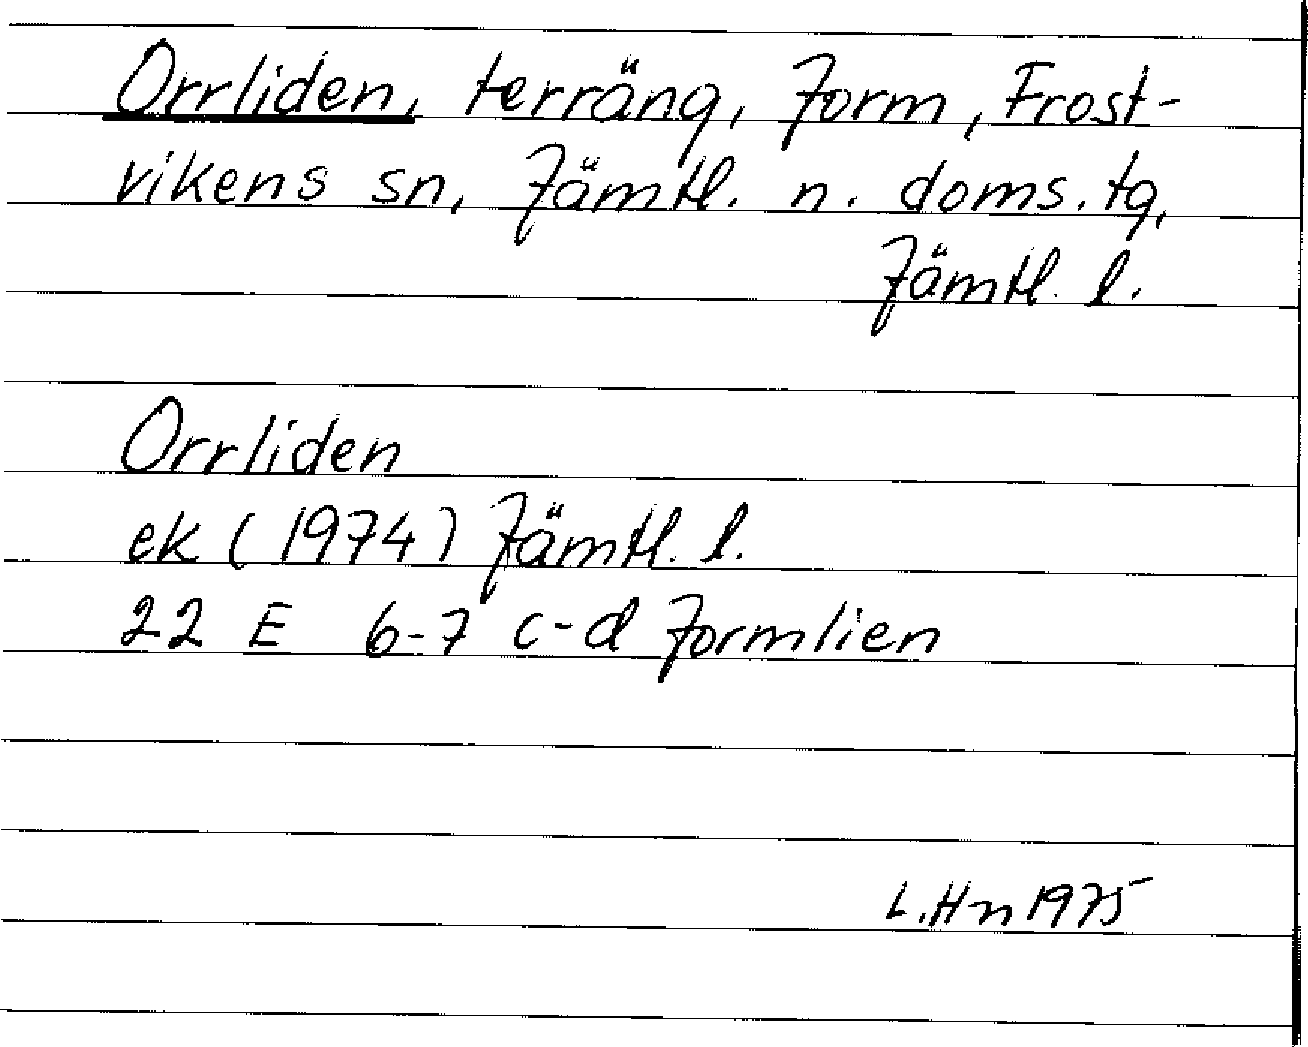 Orrliden, terräng, Jorm, Frost-
vikens sn, Jämtl. n. doms. tg,
Jämtl. l.
Orrliden
ek (1974) Jämtl. l.
22 E 6-7 c-d Jormlien
L. Hn 1975